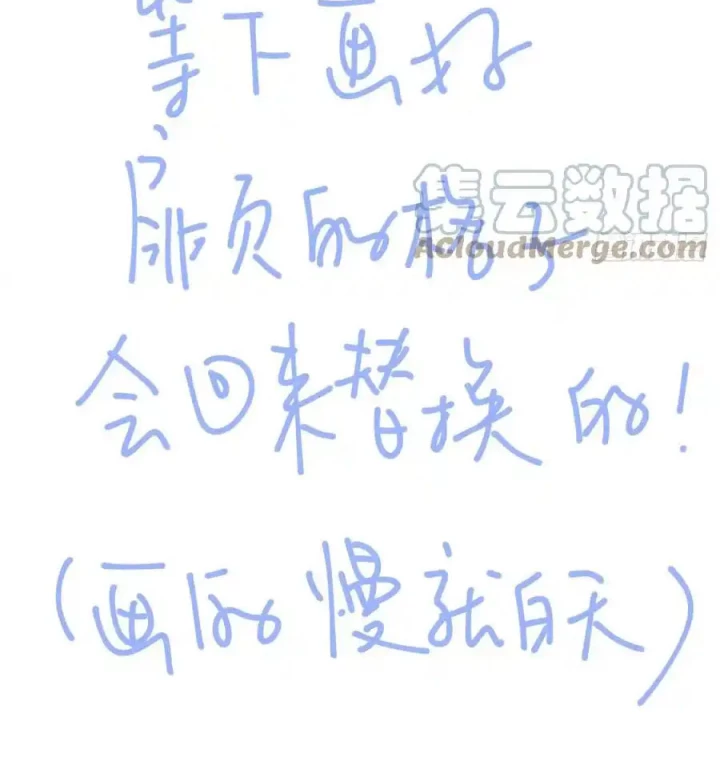 等下画好
扉页的格子
集云数据
AcloudMerge.com
会回来替换的!
(画的慢就白天)